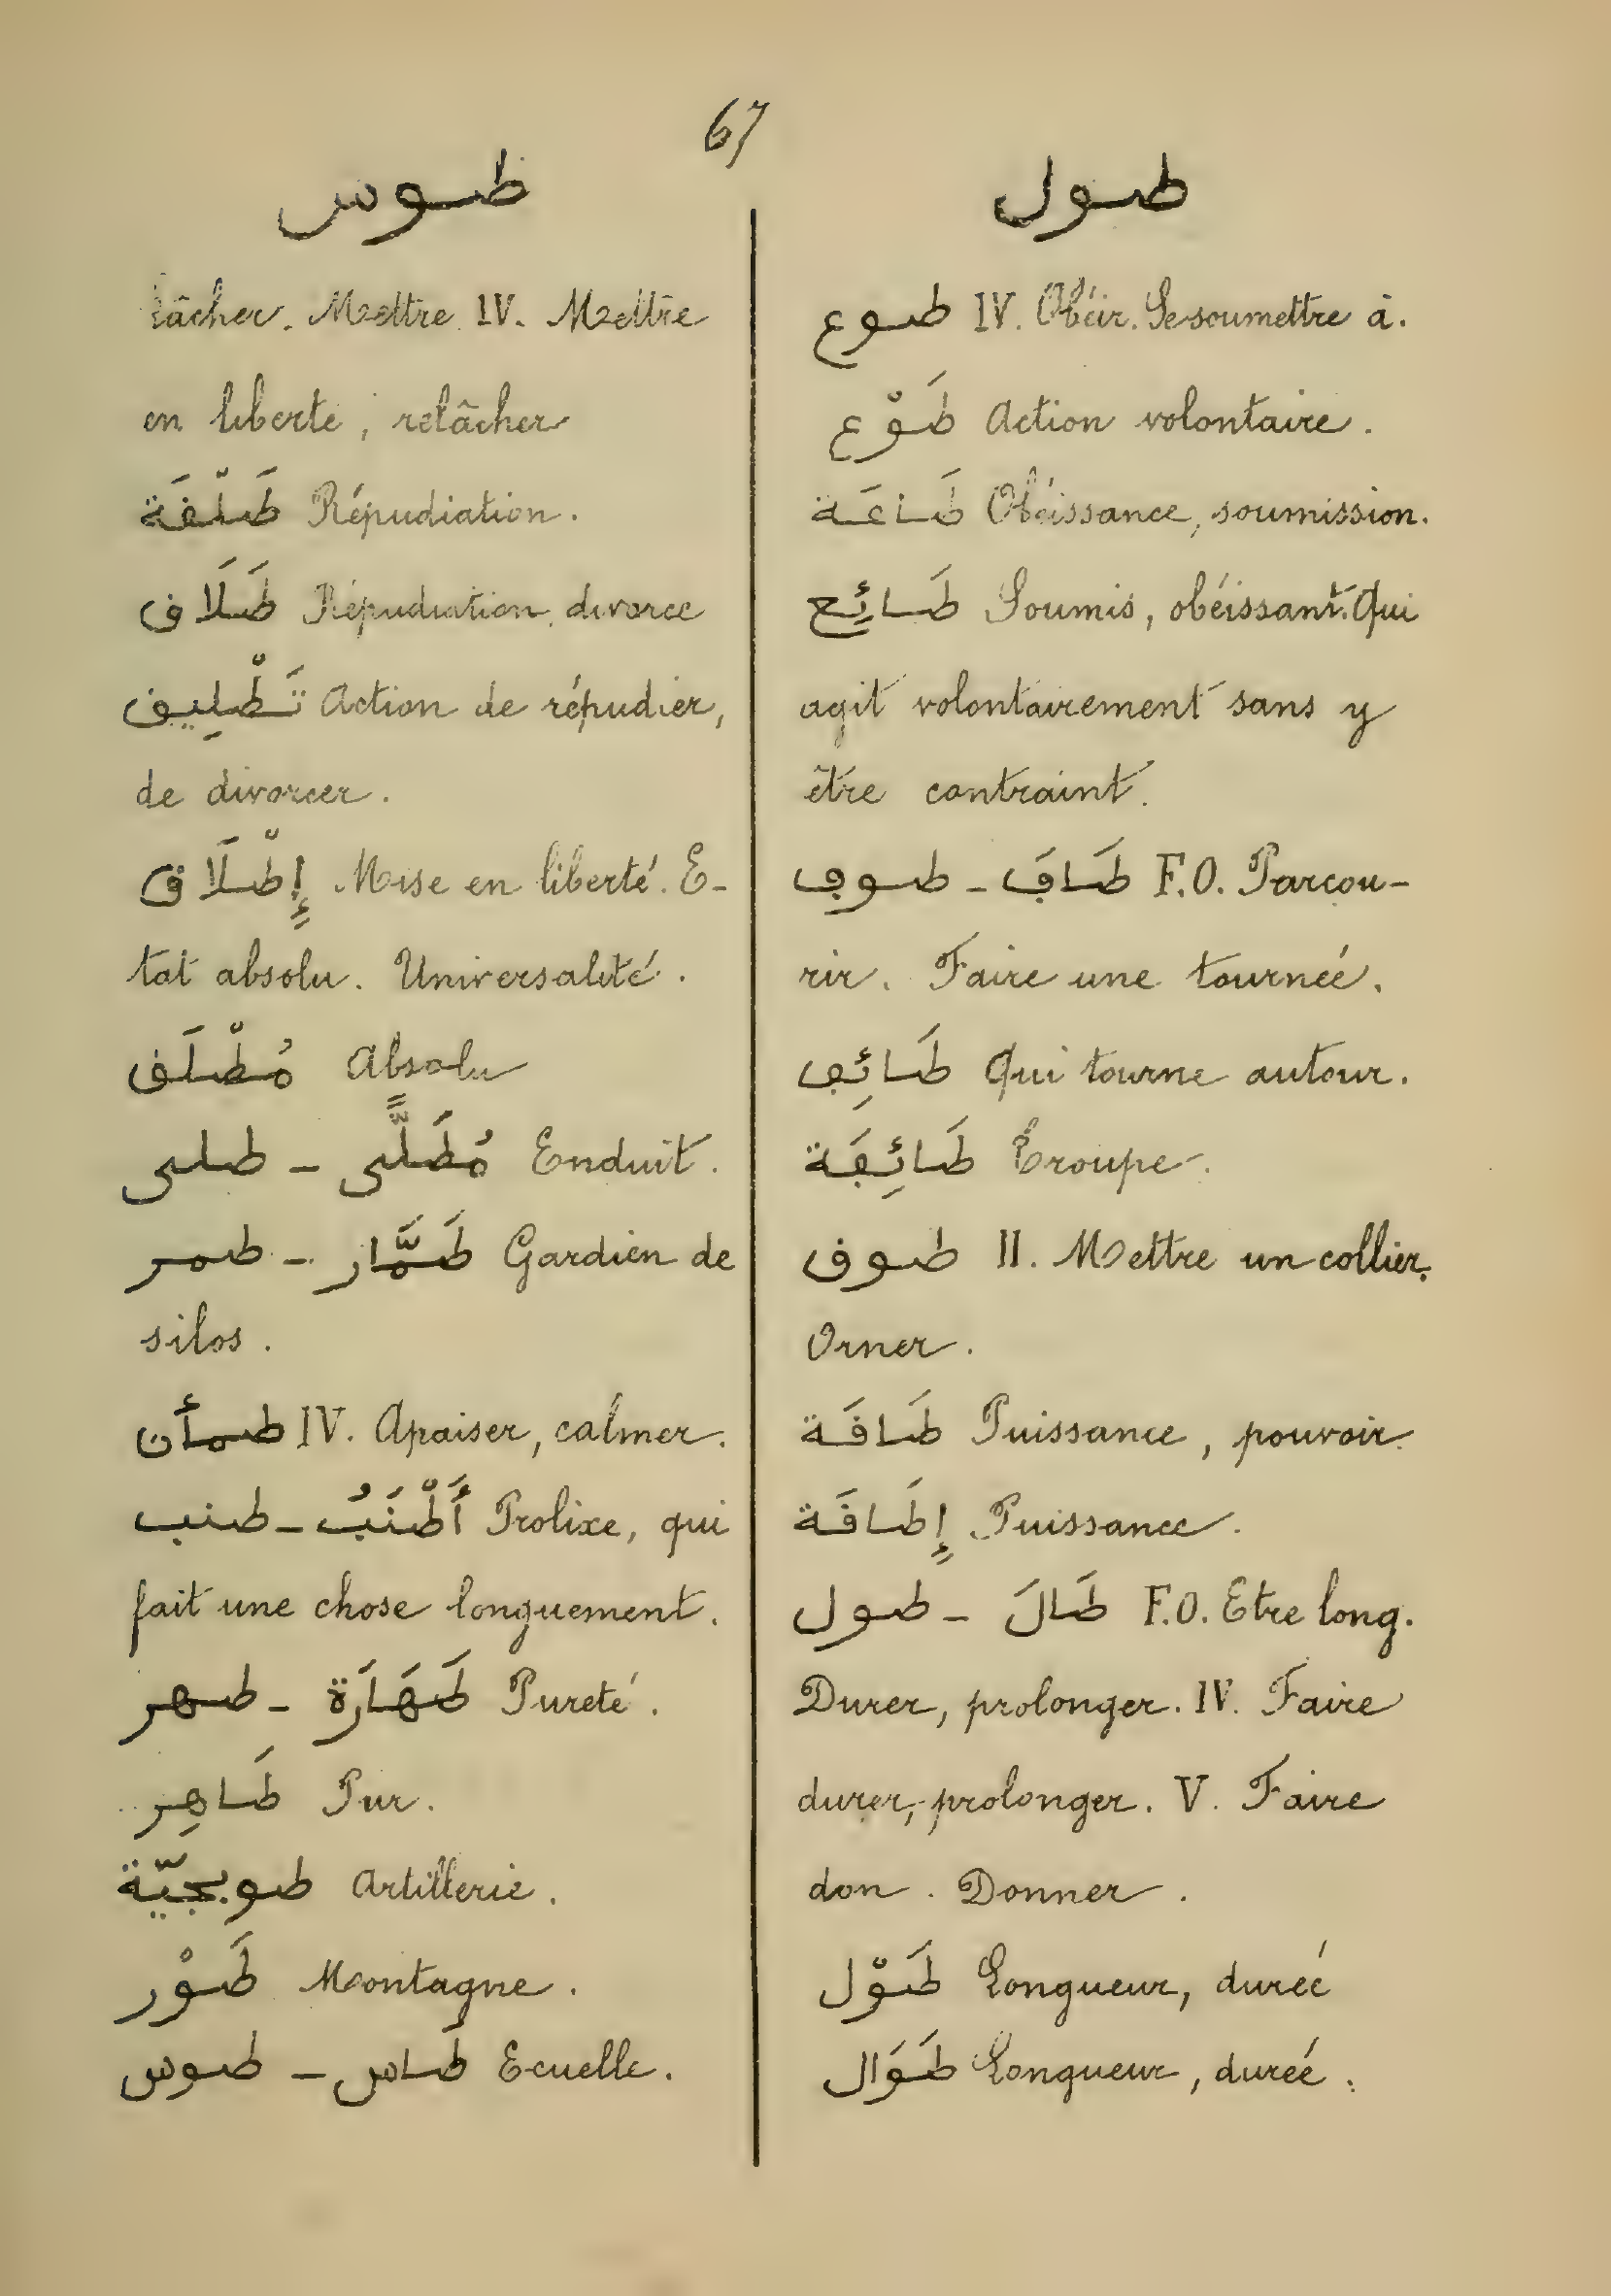 67
طوس
lâcher. Mettre IV. Mettre
en liberté, relâcher
طَلْقَة Répudiation.
طَلَاق Répudiation, divorce
تَطْلِيق Action de répudier,
de divorcer.
إِطْلَاق Mise en liberté. E-
tat absolu. Universalité.
مُطْلَق Absolu
طلى - مُطَلَّى Enduit.
طمر - طَمَّار Gardien de
silos.
طمأن IV. Apaiser, calmer.
طنب - أَطْنَبُ Prolixe, qui
fait une chose longuement.
طهر - طَهَارَة Pureté.
طَاهِر Pur.
طوبجيّة Artillerie.
طَوْر Montagne.
طوس - طَاس Ecuelle.
طول
طوع IV. Obéir. Se soumettre à.
طَوْع Action volontaire.
طَاعَة Obéissance, soumission.
طَائِع Soumis, obéissant. Qui
agit volontairement sans y
être contraint.
طوف - طَافَ F.O. Parcou-
rir. Faire une tournée.
طَائِف Qui tourne autour.
طَائِفَة Troupe.
طوق II. Mettre un collier.
Orner.
طَاقَة Puissance, pouvoir.
إِطَاقَة Puissance.
طول - طَالَ F.O. Etre long.
Durer, prolonger. IV. Faire
durer, prolonger. V. Faire
don. Donner.
طَوْل Longueur, durée
طَوَال Longueur, durée.